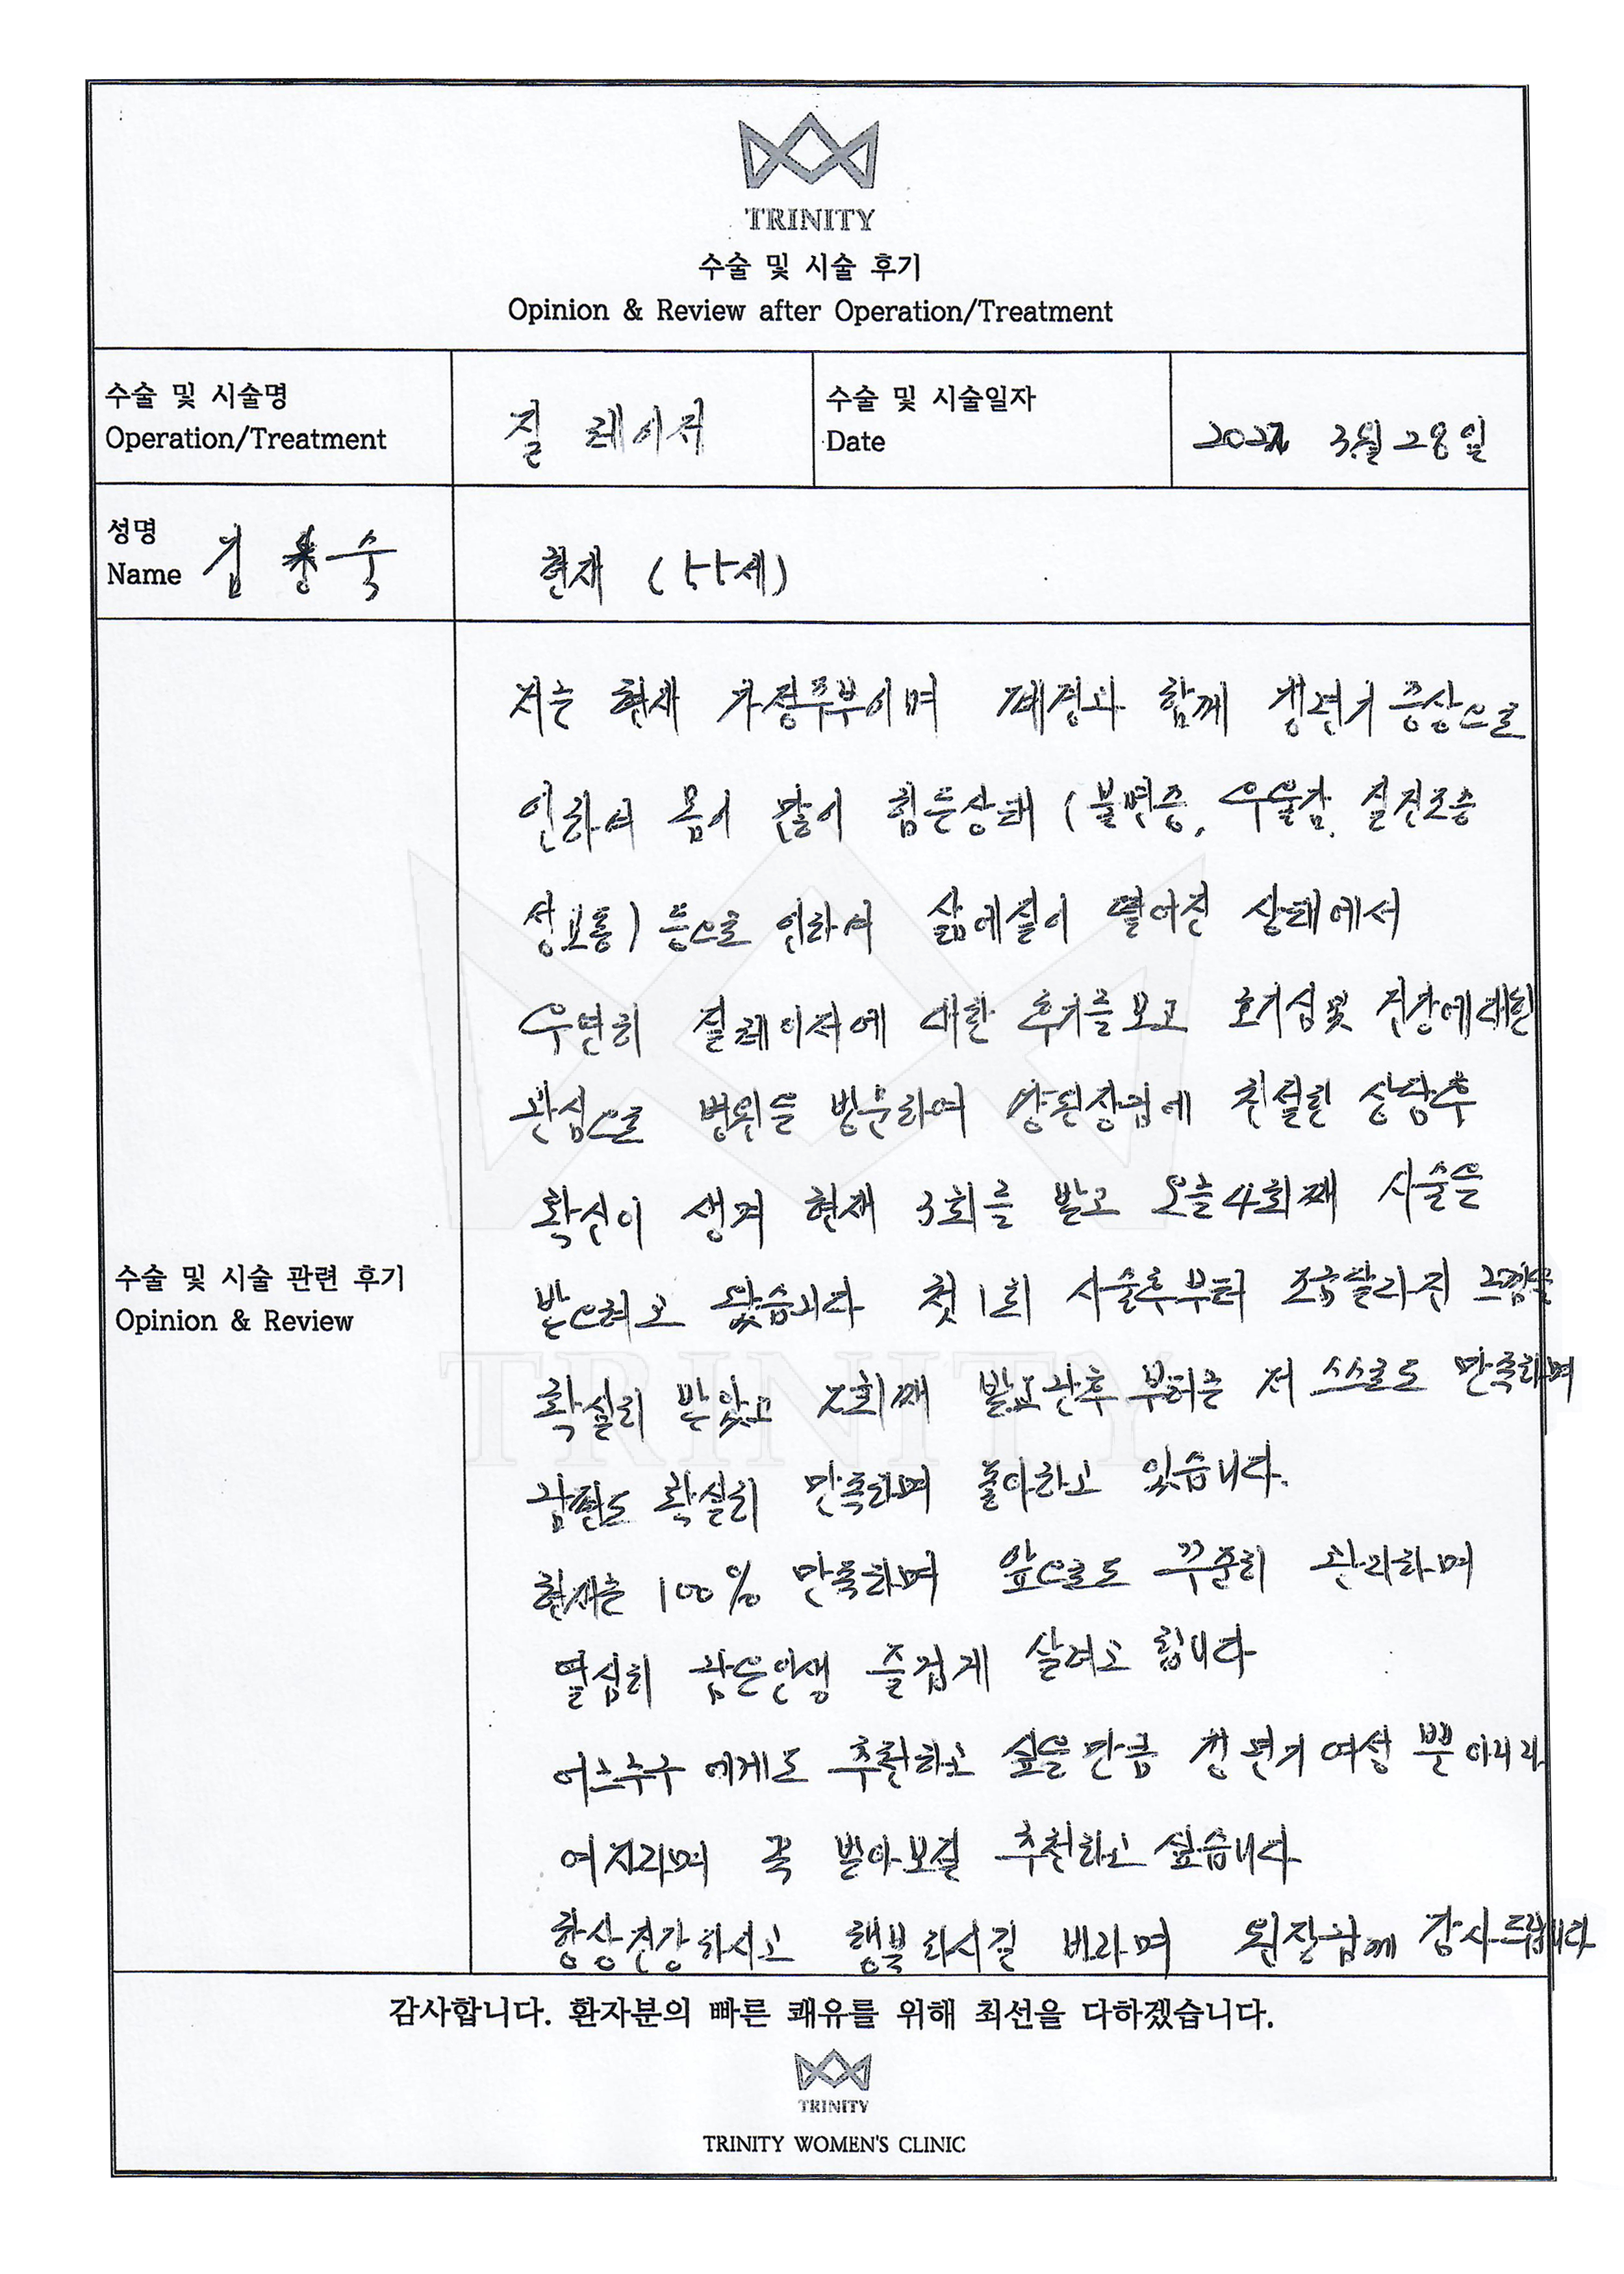 TRINITY
수술 및 시술 후기
Opinion & Review after Operation/Treatment
수술 및 시술명
Operation/Treatment
질 레이저
수술 및 시술일자
Date
3월 28일
성명
Name
김 숙
현재 (55세)
저는 현재 가정주부이며 폐경과 함께 갱년기 증상으로
인하여 몸이 많이 힘든상태 (불면증, 우울감, 질건조증
성교통) 등으로 인하여 삶에질이 떨어진 상태에서
우연히 질레이저에 대한 후기를보고 호기심및 건강에대한
관심으로 병원을 방문하여 원장님에 친절한 상담후
확신이 생겨 현재 3회를 받고 오늘4회째 시술을
받으려고 왔습니다 첫1회 시술후부터 조금달라진 느낌을
확실히 받았고 2회째 받고난후 부터는 저 스스로도 만족하며
남편도 확실히 만족하며 좋아하고 있습니다.
현재는 100% 만족하며 앞으로도 꾸준히 관리하며
열심히 남은인생 즐겁게 살려고 합니다
에게도 추천하고 싶을만큼 갱년기여성 뿐아니라
여자라며 꼭 받아보길 추천하고싶습니다
항상건강하시고 행복하시길 바라며 원장님께 감사드립니다
수술 및 시술 관련 후기
Opinion & Review
TRINITY
감사합니다. 환자분의 빠른 쾌유를 위해 최선을 다하겠습니다.
TRINITY
TRINITY WOMEN'S CLINIC